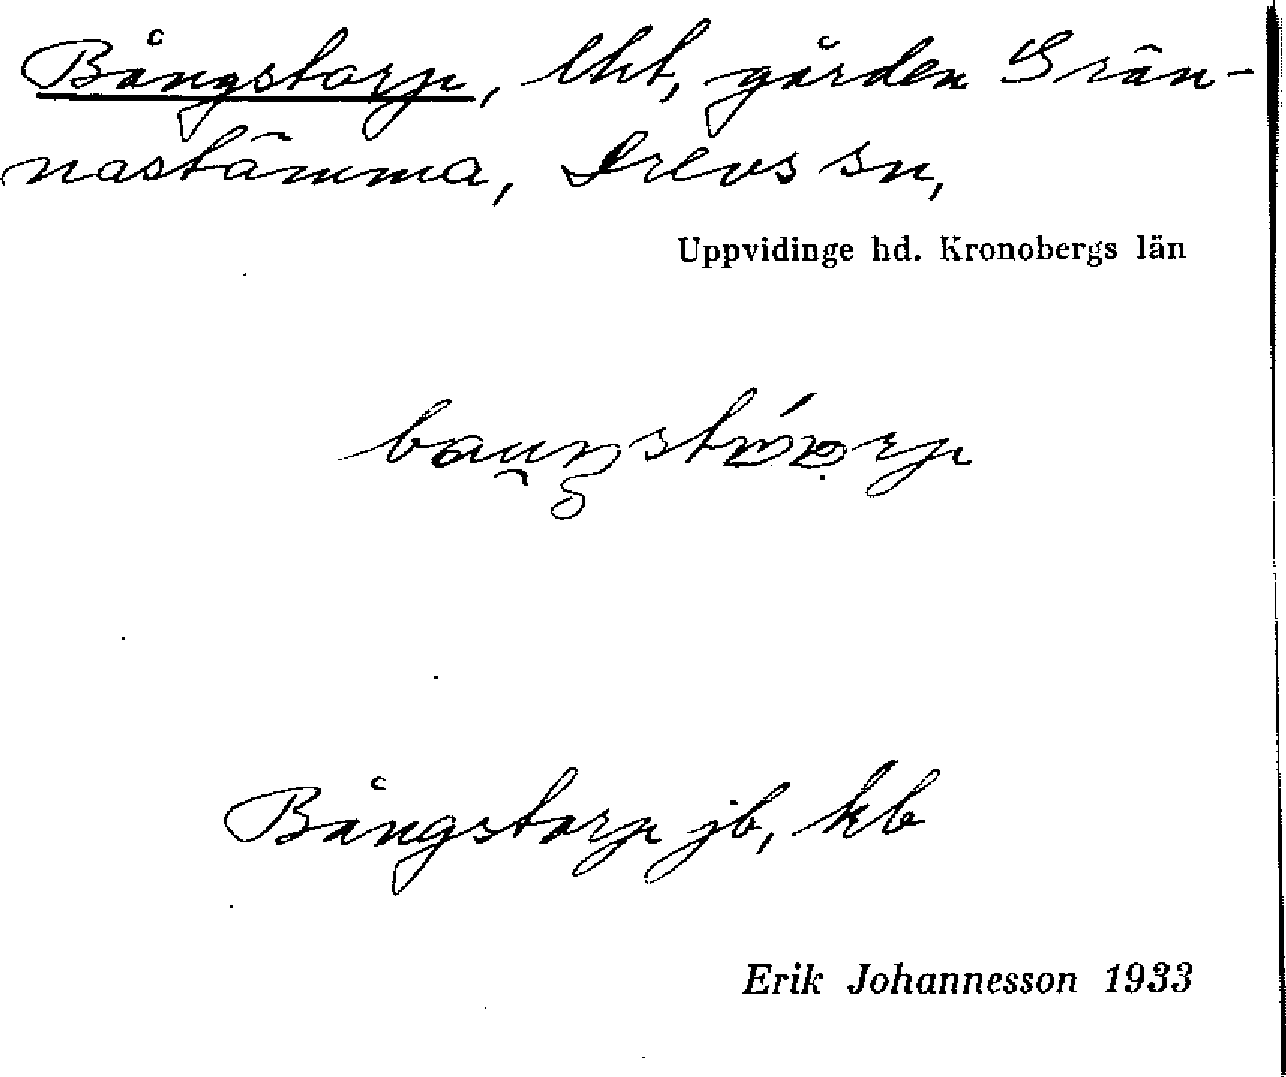 Bångstorp, lht, gården Grän-
nastämma, Drevs sn,
Uppvidinge hd. Kronobergs län
Bångstorp jb, kb
Erik Johannesson 1933